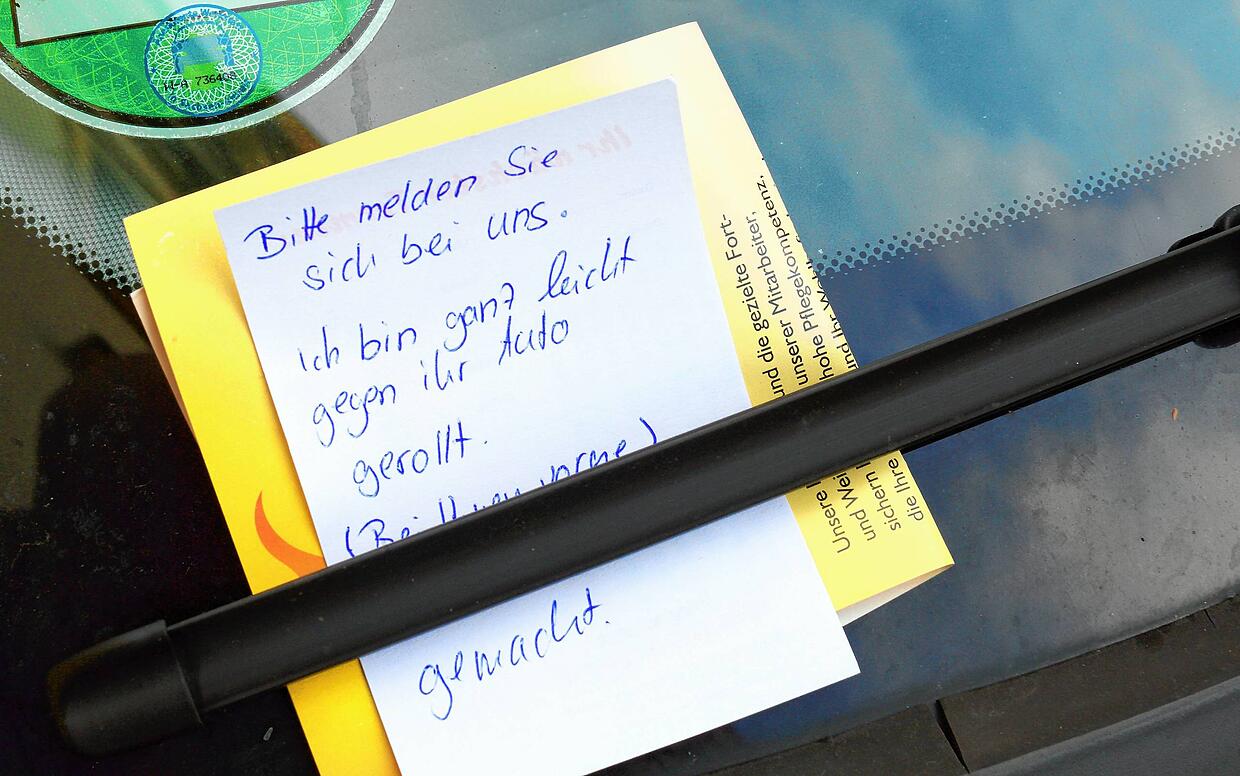 Bitte melden Sie
sich bei uns.
ich bin ganz leicht
gegen ihr Auto
gerollt.
(Bei Ihnen vorne)
gemacht.
und die gezielte Fort-
unserer Mitarbeiter,
hohe Pflegekompetenz,
und Ihr
Unsere
und Wei
sichern
die Ihre
736400